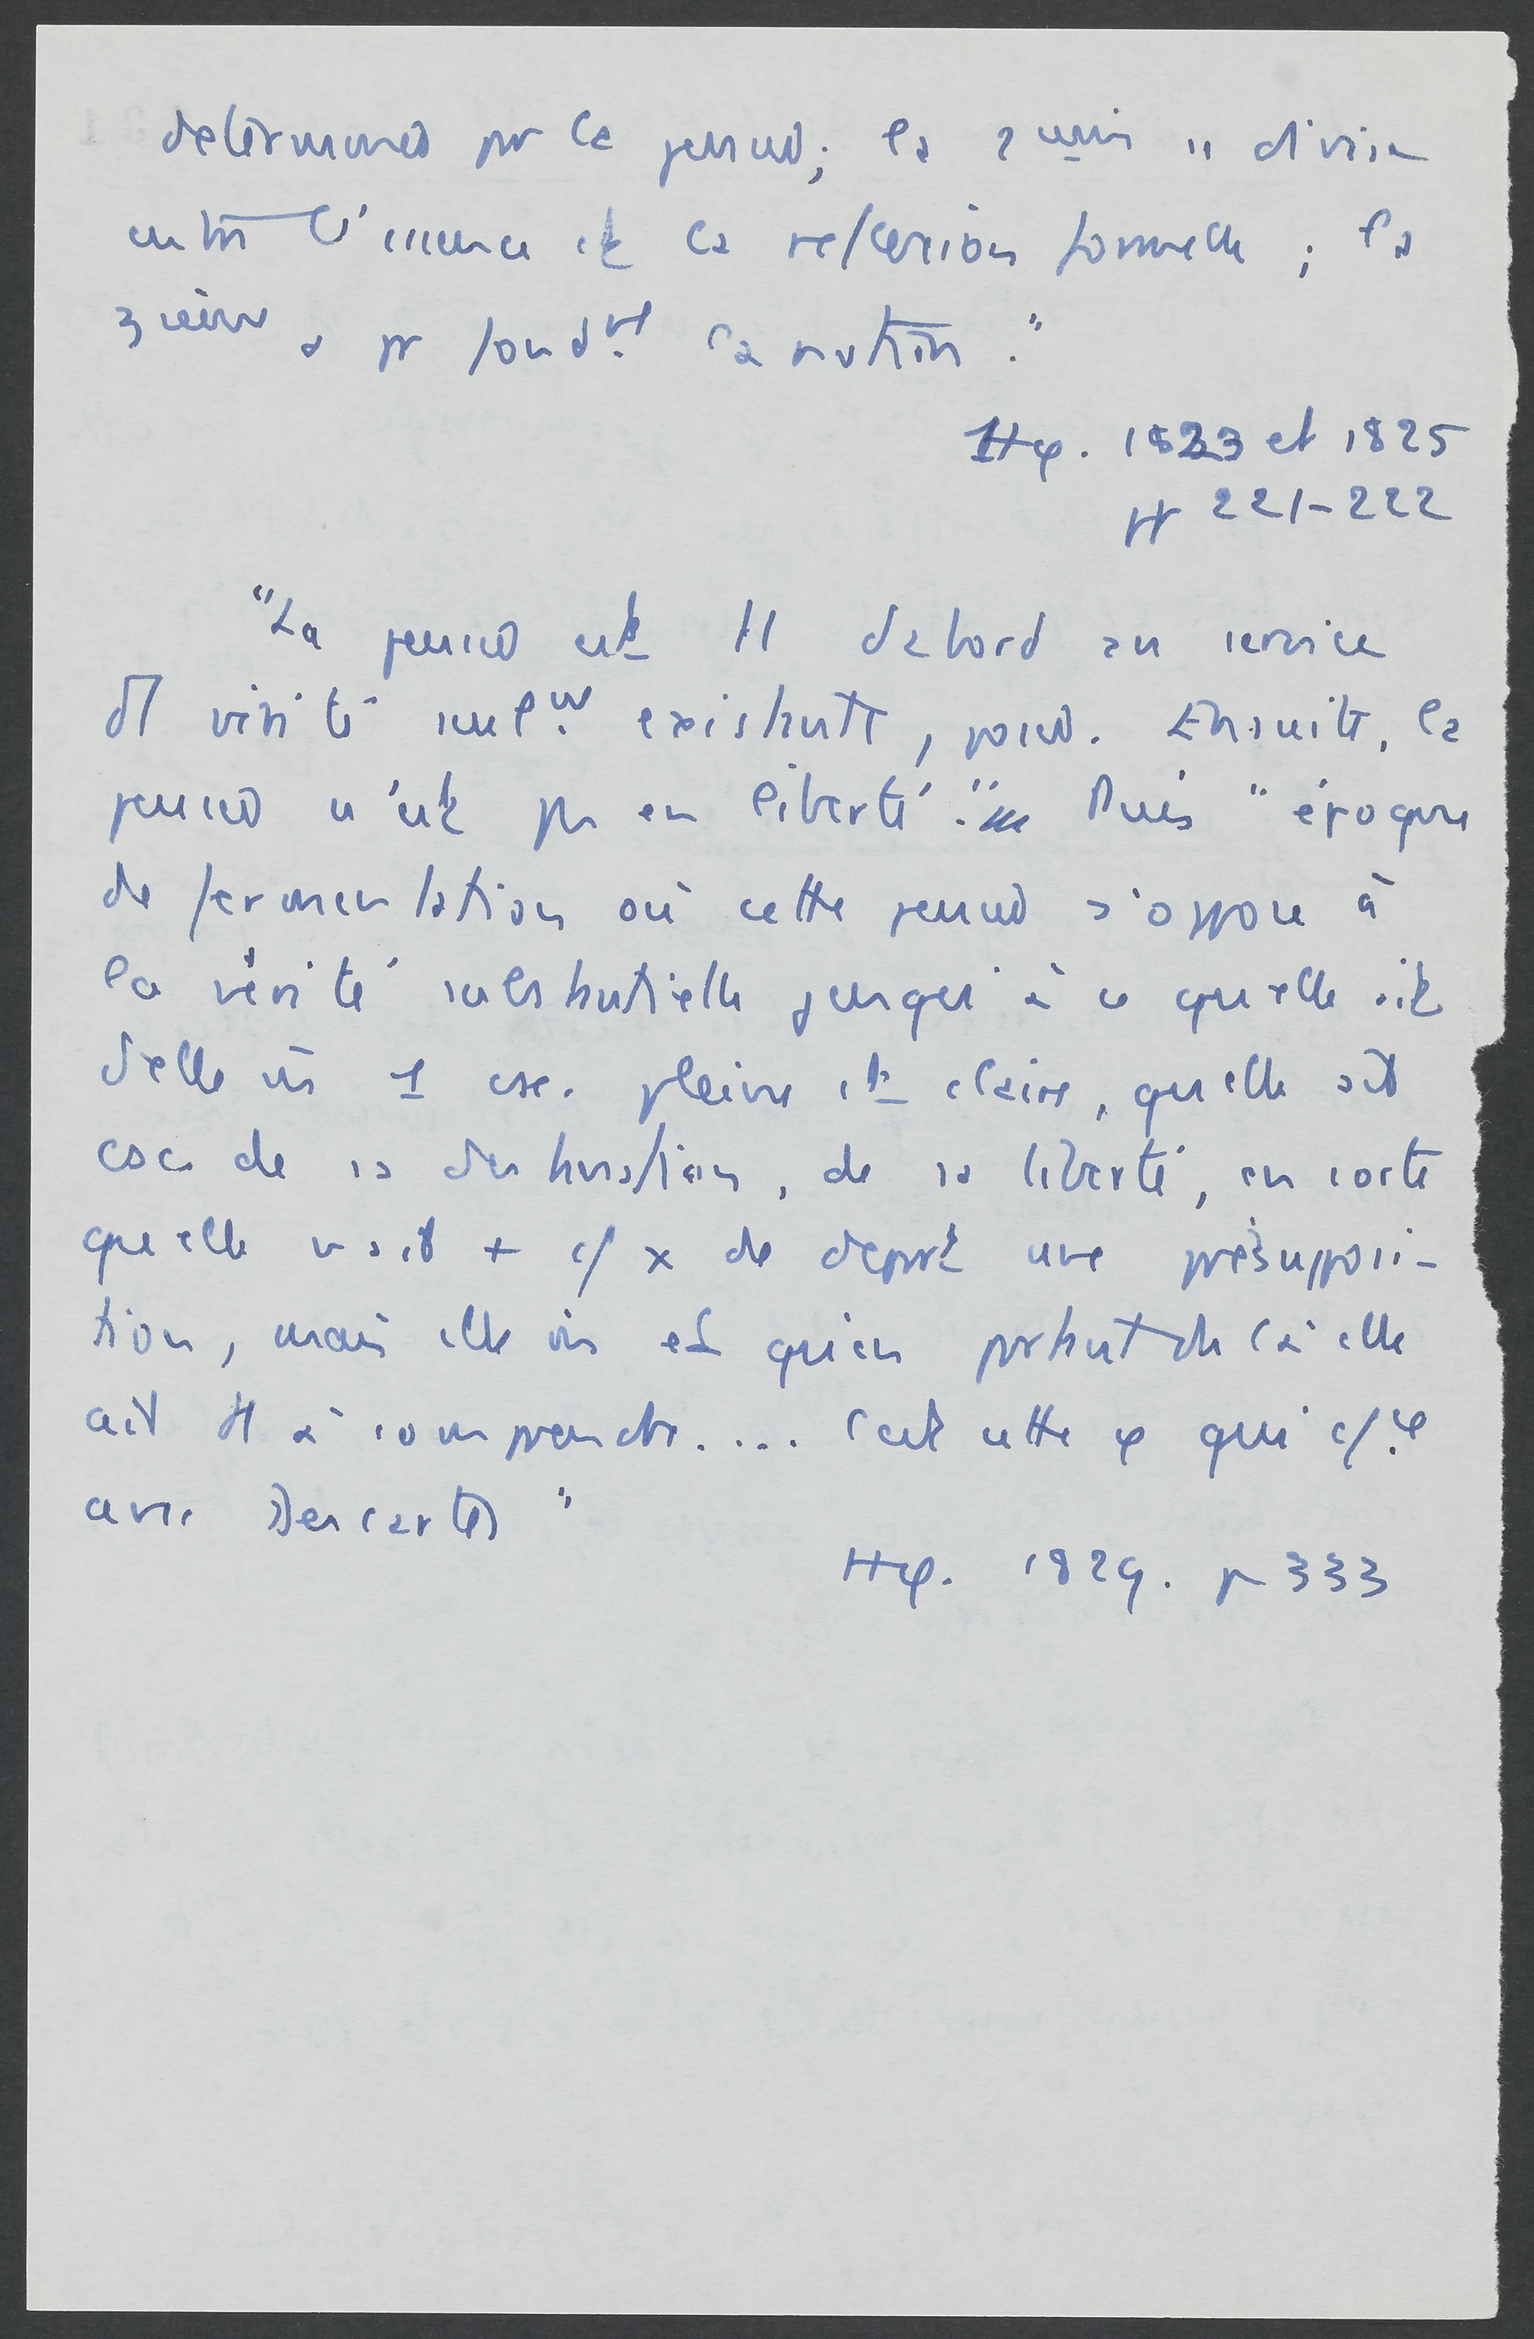 déterminée par la pensée ; la 2ème se divise
entre l'essence et la réflexion formelle ; la
3ième a pr fondt la notion."
Hφ. 1823 et 1825
pp 221-222
"La pensée est tt dabord au service
d'1 vérité seulem. existante, posée. Ensuite, la
pensée n'est pas en liberté." Puis "époque
de fermentation où cette pensée s'oppose à
la vérité substantielle jusqu'à ce quelle ait
delle m 1 csce. pleine et claire, quelle ait
csce de sa destination, de sa liberté, en sorte
quelle n'ait + c/ x de départ une présupposi-
tion, mais elle m et qu'en partant de là elle
ait tt à comprendre.... C'est cette φ qui c/ce
avec Descartes"
Hφ. 1829. p 333